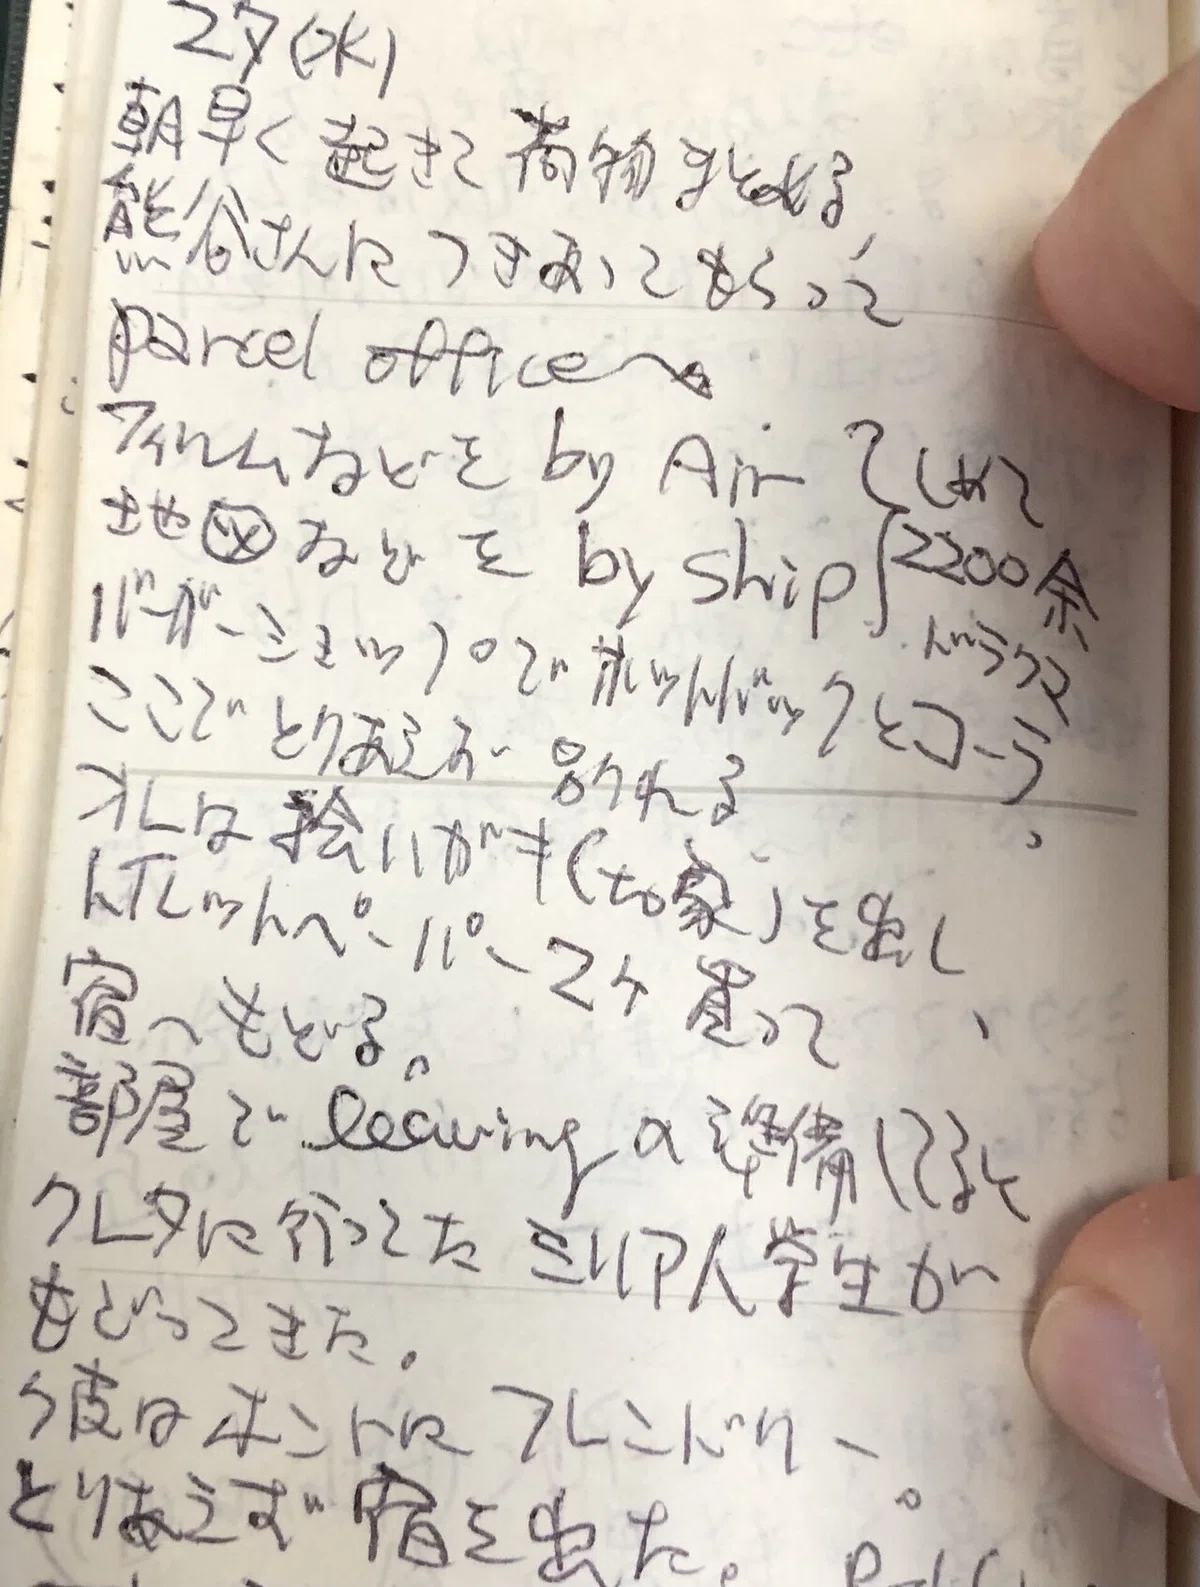 27(水)
朝早く起きて荷物まとめる、
熊谷さんにつきあってもらって
parcel officeへ
フィルムなどを by Air しめて
地図などを by ship 2200余
ドラクマ
バーガーショップでホットドックとコーラ。
ここでとりあえず別れる
オレは絵ハガキ(to家)を出し、
トイレットペーパー2ケ買って、
宿へもどる。
部屋で leaving の準備してると
クレタに行ってたシリア人学生が
もどってきた。
彼はホントにフレンドリー。
とりあえず宿を出た。